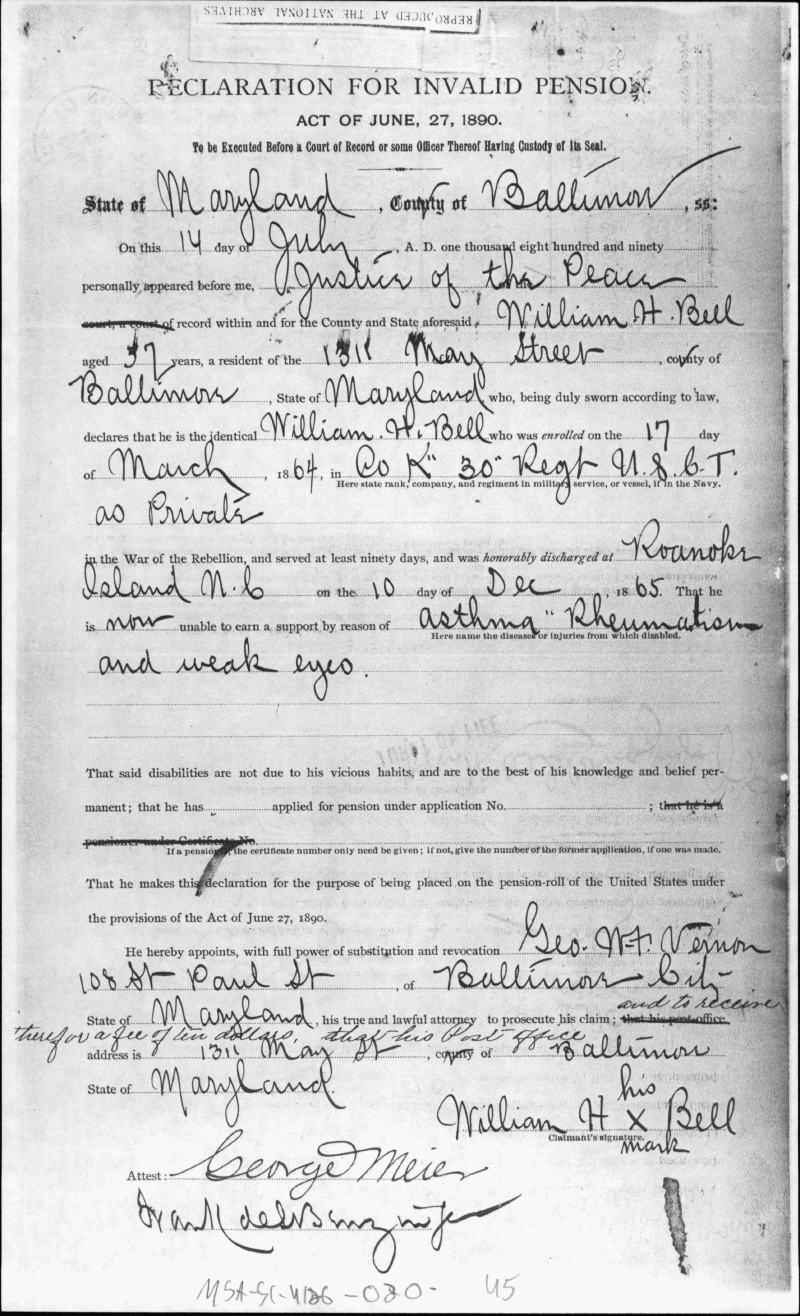 REPRODUCED AT THE NATIONAL ARCHIVES
DECLARATION FOR INVALID PENSION.
ACT OF JUNE, 27, 1890.
To be Executed Before a Court of Record or some Officer Thereof Having Custody of its Seal.
State of Maryland, County of Baltimore, ss:
On this 14 day of July, A. D. one thousand eight hundred and ninety
personally appeared before me, Justice of the Peace
court, a court of record within and for the County and State aforesaid, William H. Bell
aged 37 years, a resident of the 1311 May Street, county of
Baltimore, State of Maryland who, being duly sworn according to law,
declares that he is the identical William. H. Bell who was enrolled on the 17 day
of March, 1864, in Co K" 30" Regt U. S. C. T.
Here state rank, company, and regiment in military service, or vessel, if in the Navy.
as Private
in the War of the Rebellion, and served at least ninety days, and was honorably discharged at Roanoke
Island N. C on the 10 day of Dec, 1865. That he
is now unable to earn a support by reason of asthma" Rheumatism
Here name the diseases or injuries from which disabled.
and weak eyes.
That said disabilities are not due to his vicious habits, and are to the best of his knowledge and belief per-
manent; that he has applied for pension under application No. ; that he is a
pensioner under Certificate No.
If a pensioner, the certificate number only need be given; if not, give the number of the former application, if one was made.
That he makes this declaration for the purpose of being placed on the pension-roll of the United States under
the provisions of the Act of June 27, 1890.
He hereby appoints, with full power of substitution and revocation Geo. W. F. Vernon
108 St Paul St, of Baltimore City
State of Maryland, his true and lawful attorney to prosecute his claim; that his post-office and to receive
therefor a fee of ten dollars, that his Post office
address is 1311 May St, county of Baltimore
State of Maryland.
his
William H x Bell
Claimant's signature.
mark
Attest: George Meier
MSA-SC-4126-020- 45